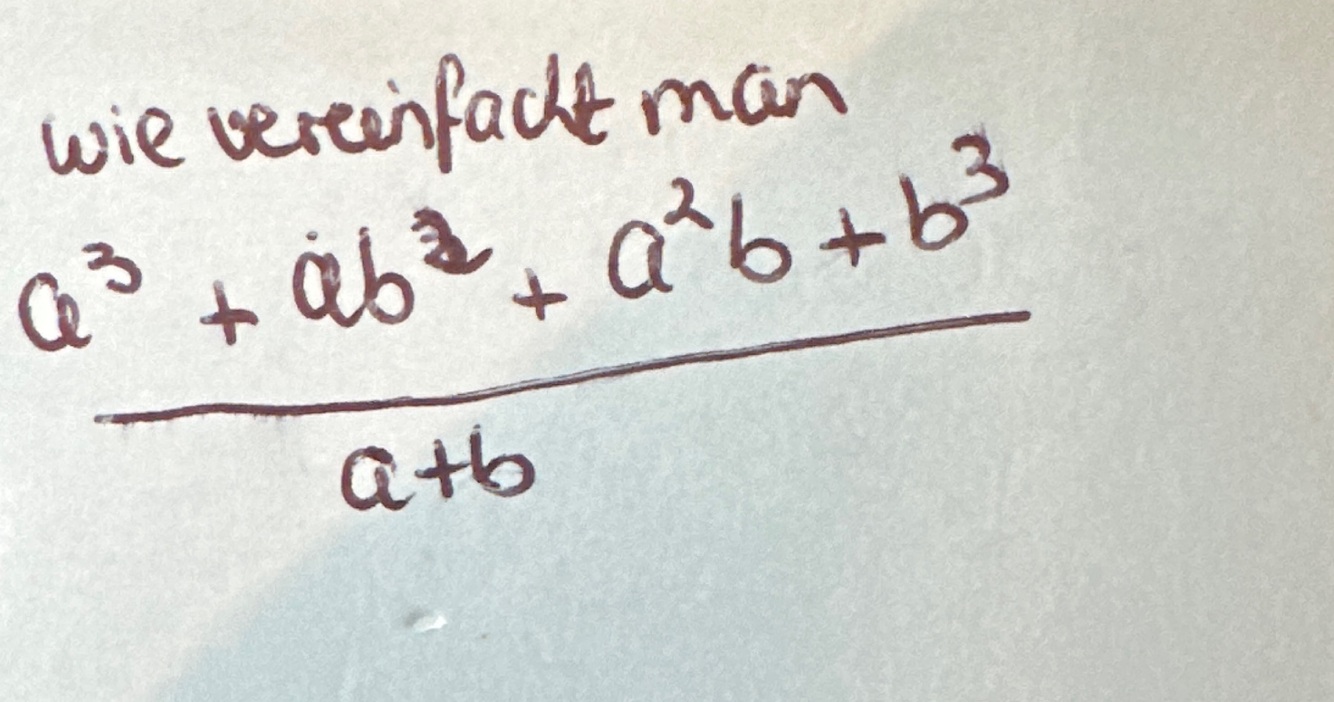 wie vereinfacht man
a³ + ab² + a²b + b³
a+b